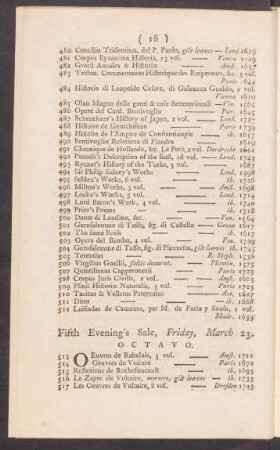 ( 18 )
480 Concilio Tridentino, del P. Paolo, gilt leaves — Lond. 1619
481 Corpus Byzantinæ Historiæ, 23 vol. — Venice 1729
482 Grotii Annales & Historiæ — Amst. 1657
483 Tristan, Commentaires Historique des Empereurs, &c. 3 vol.
Paris 1644
484 Historia di Leopoldo Cesare, di Galeazzo Gualdo, 2 vol.
Vienna 1670
485 Olao Magno delle genti & cose Settentrionali — Vin. 1565
486 Opere del Card. Bentivoglio — Par. 1645
487 Scheuchzer's History of Japan, 2 vol. — Lond. 1727
488 Histoire de Genschiscan — Paris 1739
489 Histoire de l'Empire de Constantinople — ib. 1657
490 Bentivoglio Relatione di Fiandra — 1629
491 Chronique de Hollande, &c. Le Petit, 2 vol. Dordrecht 1601
492 Pocock's Description of the East, 28 vol. — Lond. 1743
493 Rycaut's History of the Turks, 3 vol. — ib. 1687
494 Sir Philip Sidney's Works — Lond. 1598
495 Selden's Works, 6 vol. — ib. 1726
496 Milton's Works, 3 vol. — Amst. 1698
497 Locke's Works, 3 vol. — Lond. 1714
498 Lord Bacon's Work, 4 vol. — ib. 1730
499 Prior's Poems — ib. 1718
500 Dante di Landino, &c. — Fen. 1564
501 Gerusalemme di Tasso, fig. di Castello — Genoa 1617
502 The same Book — ib. 1617
503 Opere del Bembo, 4 vol. — Fen. 1729
504 Gerusalemme di Tasso, fig. di Piazzetta, gilt leaves ib. 1745
505 Terentius — R. Steph. 1536
506 Virgilius Gosellii, foliis deaurat. — Florentin. 1575
507 Quintilianus Capperonerii — Paris 1725
508 Corpus Juris Civilis, 2 vol. — Amst. 1664
509 Plinii Historiæ Naturalis, 3 vol. — Paris 1723
510 Tacitus & Velleius Paterculus — Ant. 1627
511 Ditto — ib. 1668
512 Lusiadas de Camoens, par M. de Faria y Sousa, 2 vol.
Madr. 1639
Fifth Evening's Sale, Friday, March 23.
OCTAVO.
513 OEuvres de Rabelais, 5 vol. — Amst. 1711
514 Oeuvres de Voiture — Paris 1672
515 Reflexions de Rochefoucault — ib. 1678
516 Le Zayre de Voltaire, morocco, gilt leaves — ib. 1733
517 Les Oeuvres de Voltaire, 8 vol. — Dresden 1748